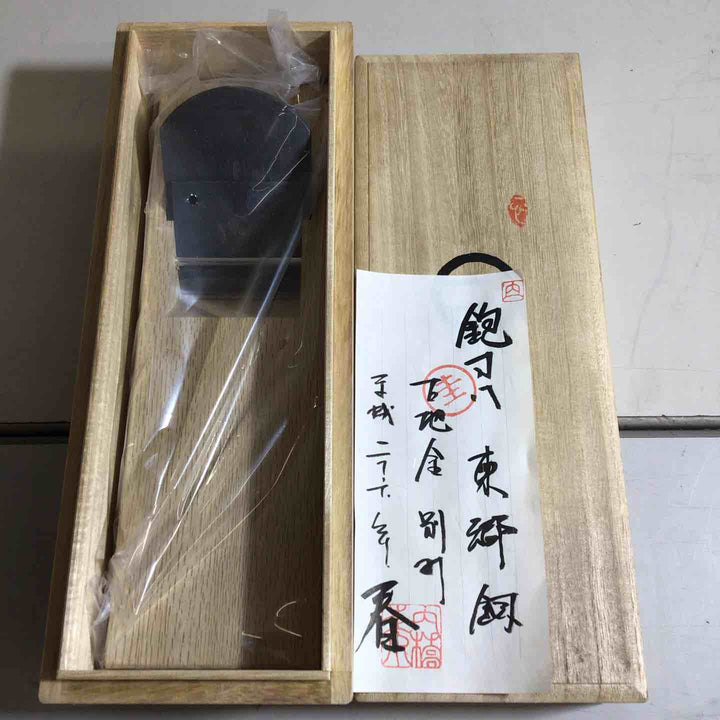 鉋刃 東郷鋼
古地金 別打
平成二十六年 春
内
圭